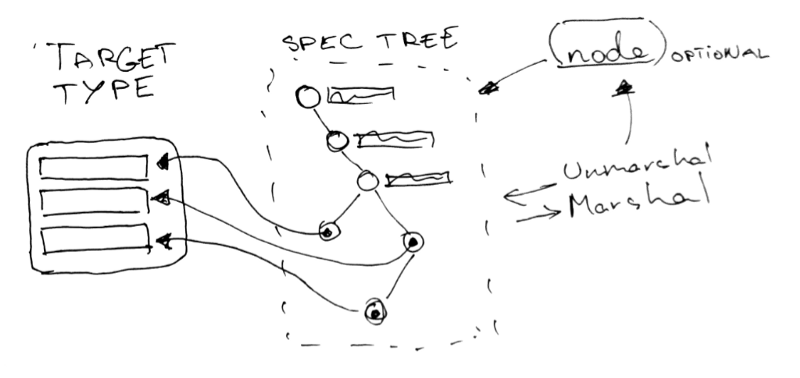 TARGET
TYPE
SPEC TREE
node OPTIONAL
Unmarshal
Marshal